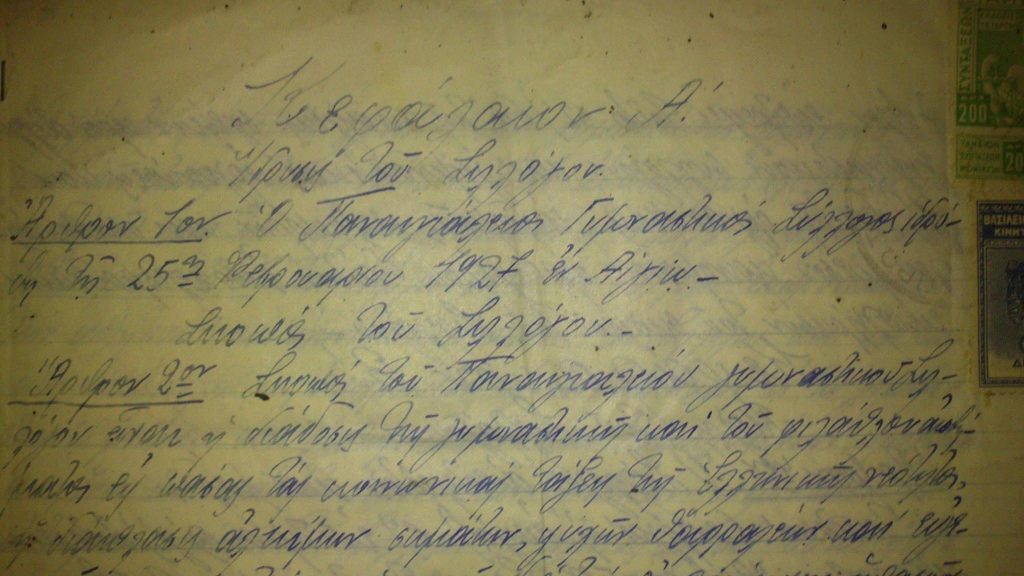 Κεφάλαιον Α!
Ἵδρυσις τοῦ Συλλόγου.
Ἄρθρον 1ον. Ὁ Παναιγιάλειος Γυμναστικός Σύλλογος ἱδρύ-
θη τῇ 25ῃ Φεβρουαρίου 1927 ἐν Αἰγίῳ –
Σκοπός τοῦ Συλλόγου. –
Ἄρθρον 2ον Σκοπός τοῦ Παναιγιαλείου γυμναστικοῦ Συλ-
λόγου εἶναι ἡ διάδοσις τῆς γυμναστικῆς καί τοῦ φιλάθλου αἰσθή-
ματος εἰς πάσας τάς κοινωνικάς τάξεις τῆς Ἑλληνικῆς νεότητος,
ἡ διάπλασις ἀλκίμων σωμάτων, ψυχῶν θαρραλέων καί
ΣΥΝΤΑΞΕΩΝ
200
20
ΒΑΣΙΛΕΙΟΝ
ΚΙΝΗΤ